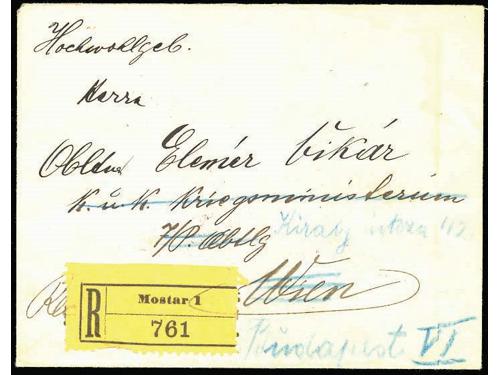 Hochwohlgeb.
Herrn
Elemér Vikár
k. u. k. Kriegsministerium
7/P. Abtlg
Király utcza
Wien
R Mostar 1
761
Budapest VI